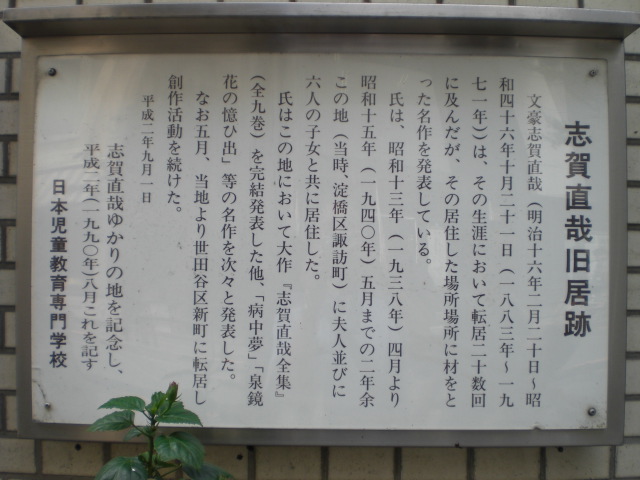 志賀直哉旧居跡
文豪志賀直哉（明治十六年二月二十日～昭
和四十六年十月二十一日（一八八三年～一九
七一年））は、その生涯において転居二十数回
に及んだが、その居住した場所場所に材をと
った名作を発表している。
氏は、昭和十三年（一九三八年）四月より
昭和十五年（一九四〇年）五月までの二年余
この地（当時、淀橋区諏訪町）に夫人並びに
六人の子女と共に居住した。
氏はこの地において大作『志賀直哉全集』
（全九巻）を完結発表した他、「病中夢」「泉鏡
花の憶ひ出」等の名作を次々と発表した。
なお五月、当地より世田谷区新町に転居し
創作活動を続けた。
平成二年九月一日
志賀直哉ゆかりの地を記念し、
平成二年（一九九〇年）八月これを記す
日本児童教育専門学校